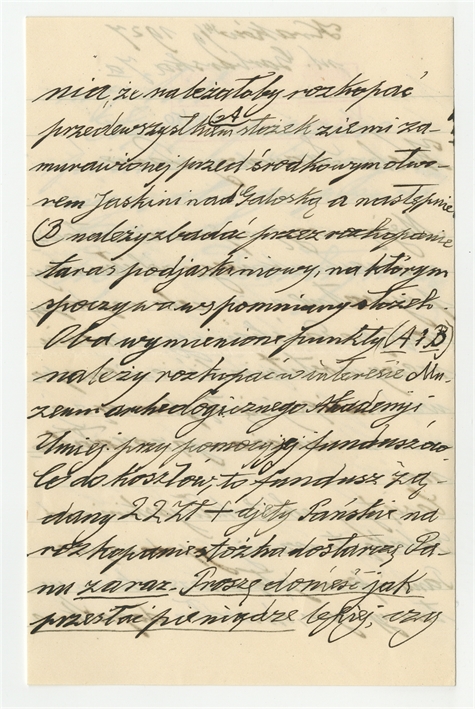 nia, że należałoby rozkopać
przedewszystkiem (A) stożek ziemi za-
murawionej przed środkowym otwo-
rem Jaskini nad Galoską a następnie
(B) należy zbadać przez rozkopanie
taras podjaskiniowy, na którym
spoczywa wspomniany stożek
Oba wymienione punkty (A i B)
należy rozkopać w interesie Mu-
zeum archeologicznego Akademji
Umiej. przy pomocy jej funduszów
Co do kosztów to fundusz żą-
dany 22 Zł + djety Pańskie na
rozkopanie stożka dostarczę Pa-
nu zaraz. Proszę donieść jak
przesłać pieniądze lepiej, czy